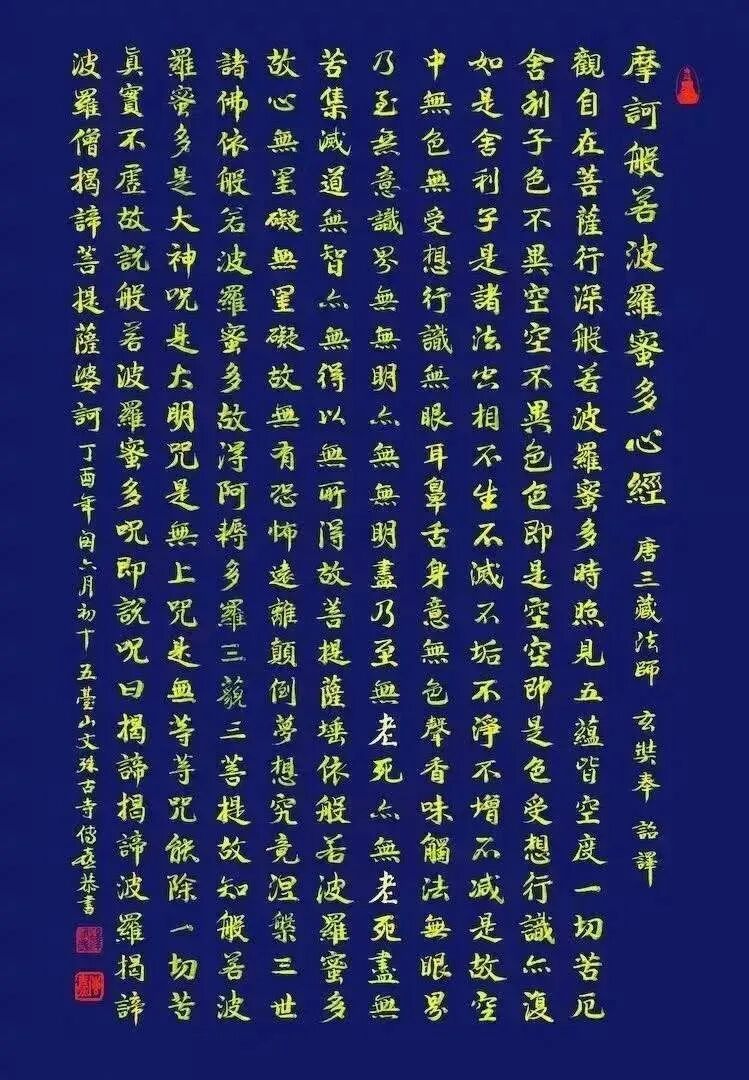 摩訶般若波羅蜜多心經 唐三藏法師 玄奘奉 詔譯
觀自在菩薩行深般若波羅蜜多時照見五蘊皆空度一切苦厄
舍利子色不異空空不異色色即是空空即是色受想行識亦復
如是舍利子是諸法空相不生不滅不垢不淨不增不減是故空
中無色無受想行識無眼耳鼻舌身意無色聲香味觸法無眼界
乃至無意識界無無明亦無無明盡乃至無老死亦無老死盡無
苦集滅道無智亦無得以無所得故菩提薩埵依般若波羅蜜多
故心無罣礙無罣礙故無有恐怖遠離顛倒夢想究竟涅槃三世
諸佛依般若波羅蜜多故得阿耨多羅三藐三菩提故知般若波
羅蜜多是大神咒是大明咒是無上咒是無等等咒能除一切苦
真實不虛故說般若波羅蜜多咒即說咒曰揭諦揭諦波羅揭諦
波羅僧揭諦菩提薩婆訶 丁酉年閏六月初十五臺山文殊古寺傳 恭書